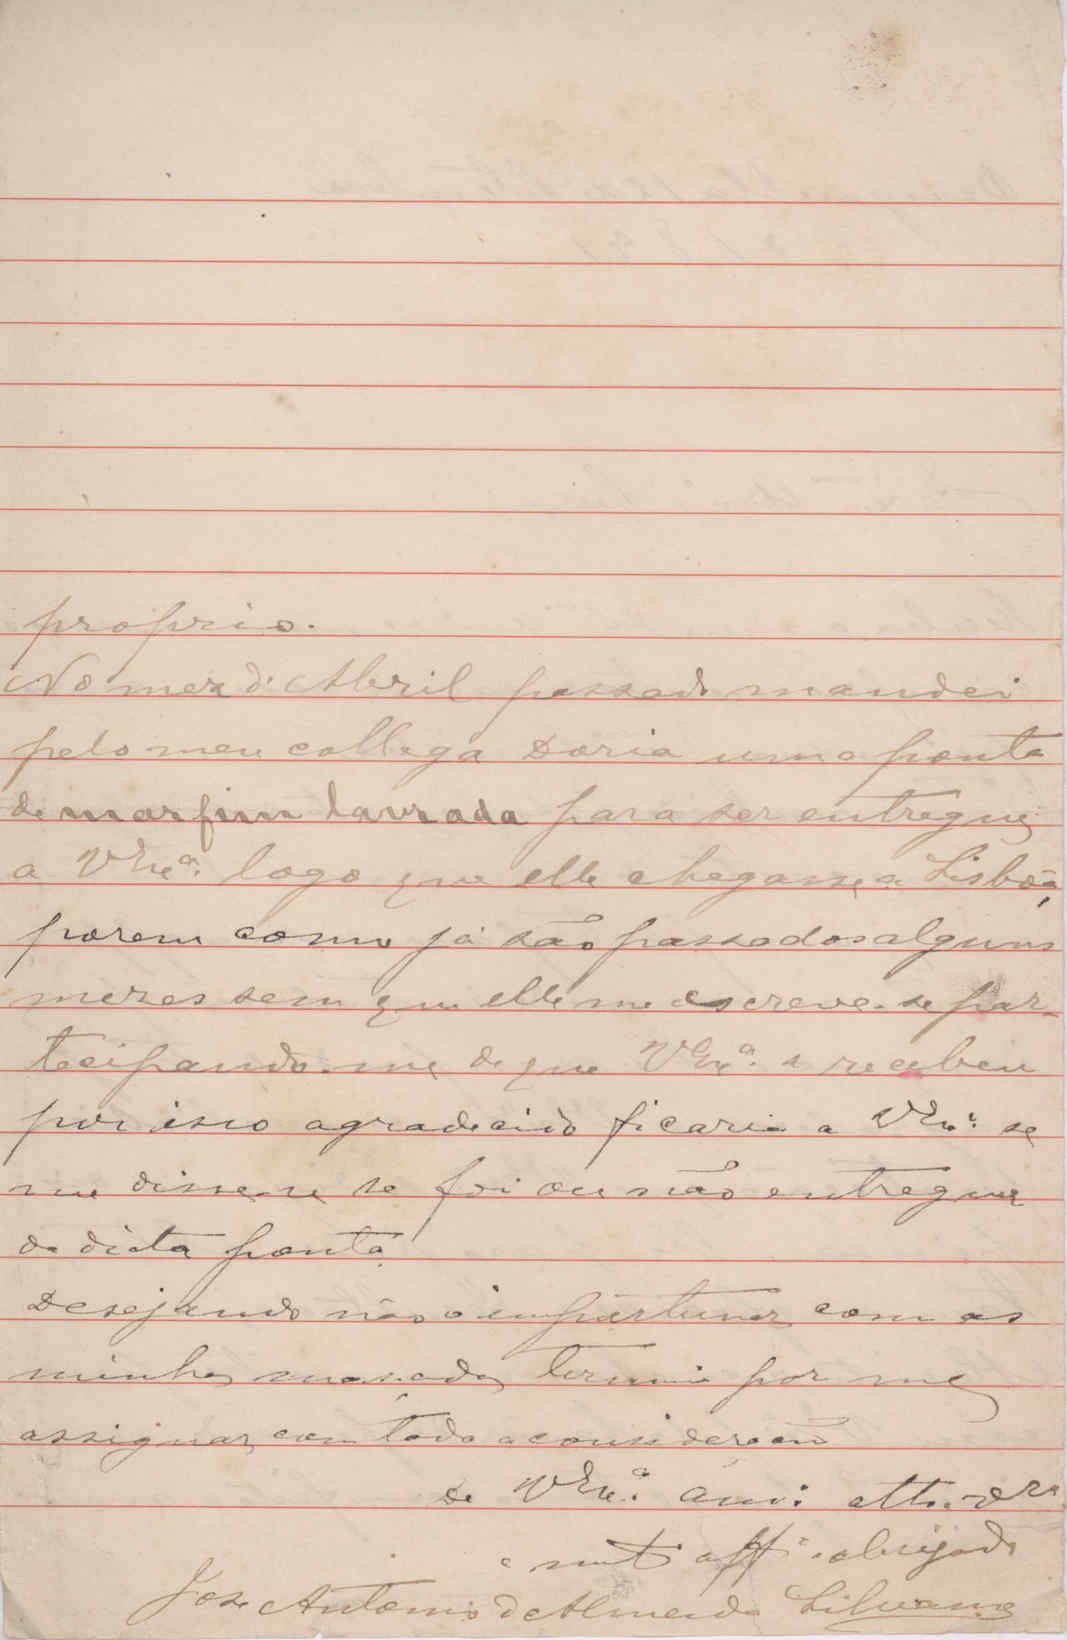 proprio.
No mez d'Abril passado mandei
pelo meu collega Doria uma ponta
de marfim lavrada para ser entregue
a VExcª. logo que elle chegasse a Lisbôa,
porem como já são passados alguns
mezes sem que elle me escreve-se par-
tecipando-me de que VExª. a recebeu
por isso agradecido ficaria a VExª. se
me disse-se se foi ou não entregue
da dicta ponta
Desejando não o importunar com as
minhas massadas termino por me
assignar com toda a consideração
de VExª. amº. attº. vor
e mtº affº. obrigado
Jose Antonio d'Almeida